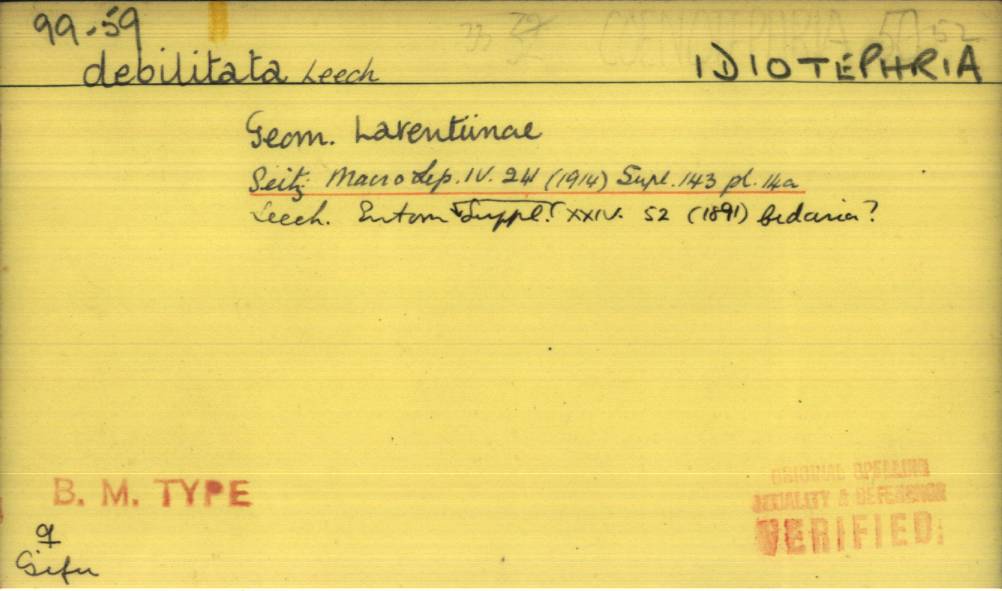 99.59
debilitata Leech IDIOTEPHRIA
COENOTEPHRIA 50 52
Geom. Larentiinae
Seitz Macro Lep. IV. 241 (1914) Supl. 143 pl. 14a
Leech. Entom (Suppl.) XXIV. 52 (1891) Cidaria?
B. M. TYPE
ORIGINAL SPELLING
SEXUALITY & REFERENCE
VERIFIED
♀
Gifu